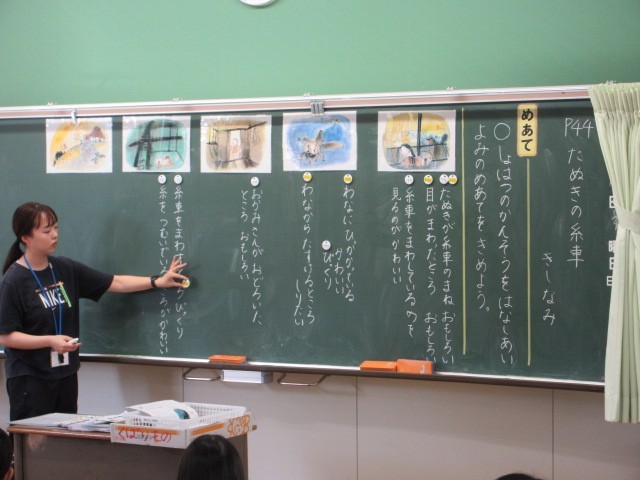 P44 たぬきの糸車
きしなみ
めあて
○しょはつのかんそうをはなしあい
よみのめあてを きめよう。
たぬきが糸車のまね おもしろい
目がまわったところ おもしろい
糸車をまわしているのを
見るのがかわいい
わなにひびがかかっている
かわいい
びっくり
わながらたすけるところ
しりたい
おかみさんが おどろいた
ところ おもしろい
糸車をまわ
びっくり
糸を つむいでいる
ろがかわいい
NIKE
曜日
くばりもの